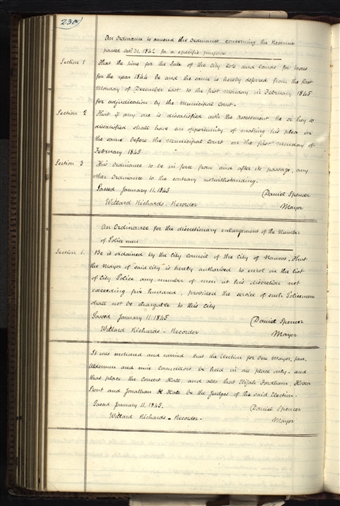 230
An Ordinance to amend the Ordinance concerning the Revenue
passed Jan. 1845 for a specific purpose
Section 1 That the time for the sale of the city lots and lands for taxes
for the year 1844 be and the same is hereby deferred from the first
Monday of December last to the first monday in February 1845
for adjudication by the Municipal Court.
Section 2 That if any one is dissatisfied with the assessment he or they so
dissatisfied shall have an opportunity of making his plea on
the same before the Municipal Court on the first monday of
February 1845
Section 3 This Ordinance to be in force from and after its passage, any
other Ordinance to the contrary notwithstanding.
Passed January 11. 1845
Daniel Spencer
Willard Richards. Recorder
Mayor
An Ordinance for the discretionary enlargement of the Number
of Police men
Section 1. Be it ordained by the City Council of the City of Nauvoo, That
the Mayor of said city is hereby authorized to enrol in the list
of City Police any number of men in his discretion not
exceeding five hundred, provided the service of such Policemen
shall not be chargeable to this City
Passed January 11. 1845.
Daniel Spencer
Willard Richards - Recorder
Mayor
It was motioned and carried that the Election for One Mayor, four
Aldermen and nine Councillors be held in one place only, and
that place the Concert Hall and also that Elijah Fordham, Hosea
Stout and Jonathan H Hale be the Judges of the said Election.
Passed January 11. 1845.
Daniel Spencer
Willard Richards - Recorder.
Mayor